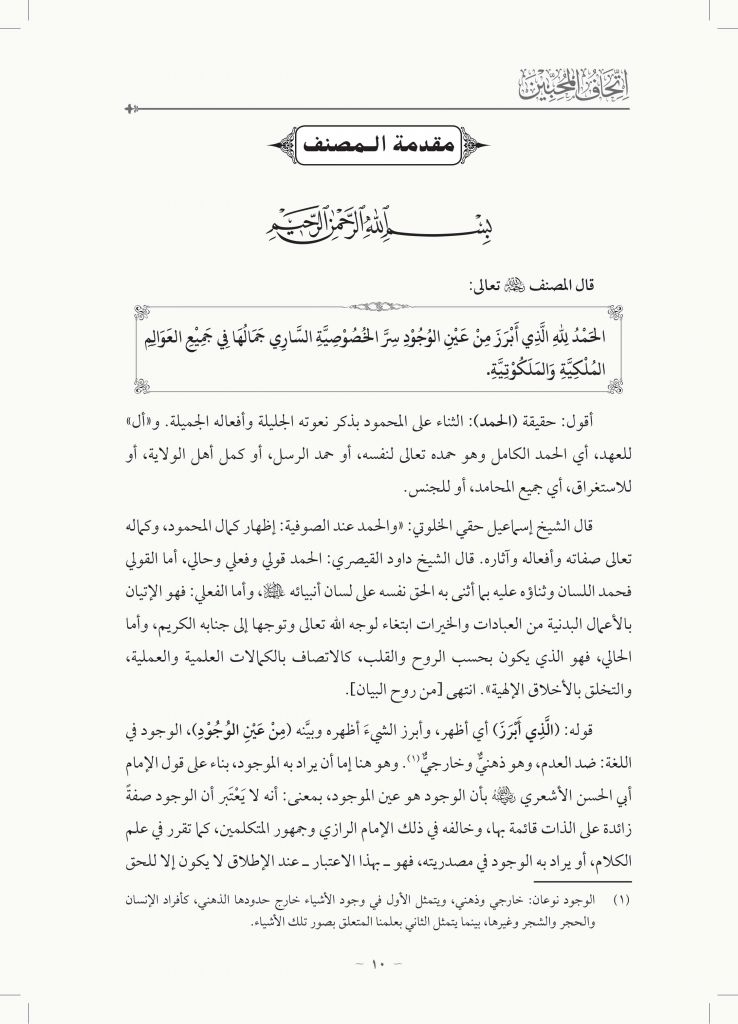 إِتْحَافُ المُحِبِّين
مقدمة الـمصنف
بِسْمِ اللهِ الرَّحْمٰنِ الرَّحِيمِ
قال المصنف تعالى:
الحَمْدُ لِلهِ الَّذِي أَبْرَزَ مِنْ عَيْنِ الوُجُوْدِ سِرَّ الخُصُوْصِيَّةِ السَّارِي جَمَالُهَا فِي جَمِيْعِ العَوَالِمِ
المُلْكِيَّةِ وَالمَلَكُوْتِيَّةِ.
أقول: حقيقة (الحمد): الثناء على المحمود بذكر نعوته الجليلة وأفعاله الجميلة. و«أل»
للعهد، أي الحمد الكامل وهو حمده تعالى لنفسه، أو حمد الرسل، أو كمل أهل الولاية، أو
للاستغراق، أي جميع المحامد، أو للجنس.
قال الشيخ إسماعيل حقي الخلوتي: «والحمد عند الصوفية: إظهار كمال المحمود، وكماله
تعالى صفاته وأفعاله وآثاره. قال الشيخ داود القيصري: الحمد قولي وفعلي وحالي، أما القولي
فحمد اللسان وثناؤه عليه بما أثنى به الحق نفسه على لسان أنبيائه، وأما الفعلي: فهو الإتيان
بالأعمال البدنية من العبادات والخيرات ابتغاء لوجه الله تعالى وتوجها إلى جنابه الكريم، وأما
الحالي، فهو الذي يكون بحسب الروح والقلب، كالاتصاف بالكمالات العلمية والعملية،
والتخلق بالأخلاق الإلهية». انتهى [من روح البيان].
قوله: (الَّذِي أَبْرَزَ) أي أظهر، وأبرز الشيءَ أظهره وبيَّنه (مِنْ عَيْنِ الوُجُوْدِ)، الوجود في
اللغة: ضد العدم، وهو ذهنيٌّ وخارجيٌّ(١). وهو هنا إما أن يراد به الموجود، بناء على قول الإمام
أبي الحسن الأشعري بأن الوجود هو عين الموجود، بمعنى: أنه لا يَعْتَبر أن الوجود صفةً
زائدة على الذات قائمة بها، وخالفه في ذلك الإمام الرازي وجمهور المتكلمين، كما تقرر في علم
الكلام، أو يراد به الوجود في مصدريته، فهو ـ بهذا الاعتبار ـ عند الإطلاق لا يكون إلا للحق
(١) الوجود نوعان: خارجي وذهني، ويتمثل الأول في وجود الأشياء خارج حدودها الذهني، كأفراد الإنسان
والحجر والشجر وغيرها، بينما يتمثل الثاني بعلمنا المتعلق بصور تلك الأشياء.
~ ١٠ ~